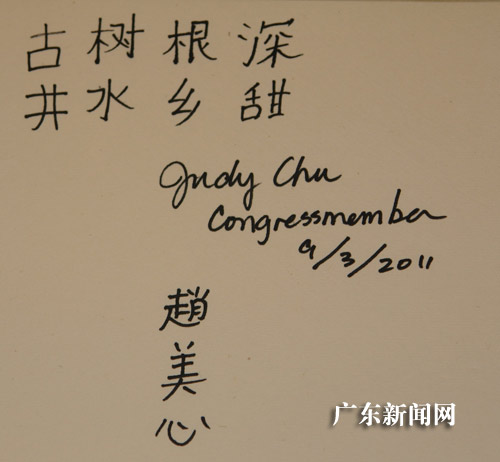 古树根深
井水乡甜
Judy Chu
Congressmember
9/3/2011
趙
美
心
广东新闻网